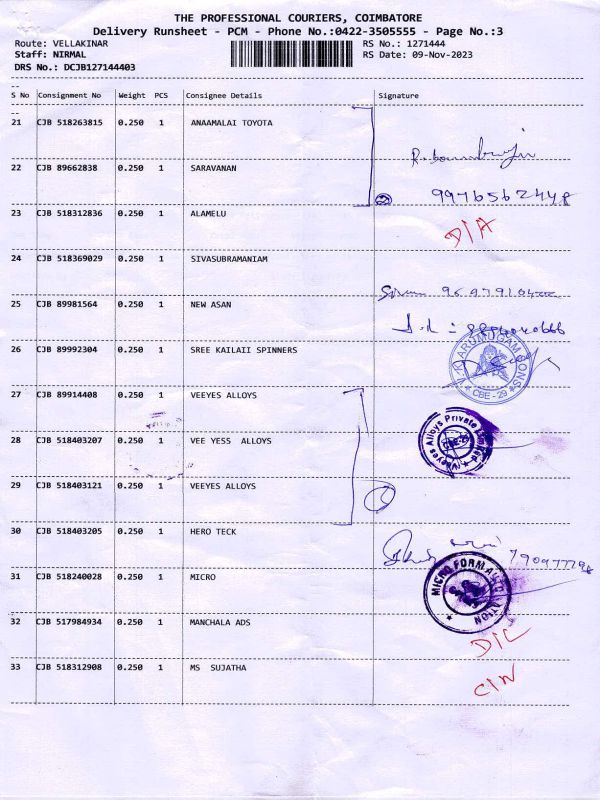 THE PROFESSIONAL COURIERS, COIMBATORE
Delivery Runsheet - PCM - Phone No.:0422-3505555 - Page No.:3
Route: VELLAKINAR RS No.: 1271444
Staff: NIRMAL RS Date: 09-Nov-2023
DRS No.: DCJB127144403
--
S No Consignment No Weight PCS Consignee Details Signature
--
21 CJB 518263815 0.250 1 ANAAMALAI TOYOTA
22 CJB 89662838 0.250 1 SARAVANAN
9976562448
23 CJB 518312836 0.250 1 ALAMELU
D/A
24 CJB 518369029 0.250 1 SIVASUBRAMANIAM
25 CJB 89981564 0.250 1 NEW ASAN
26 CJB 89992304 0.250 1 SREE KAILAII SPINNERS
ARUMUGAM SONS
* CBE - 29 *
27 CJB 89914408 0.250 1 VEEYES ALLOYS
28 CJB 518403207 0.250 1 VEE YESS ALLOYS
Veeyes Alloys Private Limited
29 CJB 518403121 0.250 1 VEEYES ALLOYS
30 CJB 518403205 0.250 1 HERO TECK
31 CJB 518240028 0.250 1 MICRO
MICRO FORM
32 CJB 517984934 0.250 1 MANCHALA ADS
D/L
33 CJB 518312908 0.250 1 MS SUJATHA
C/N